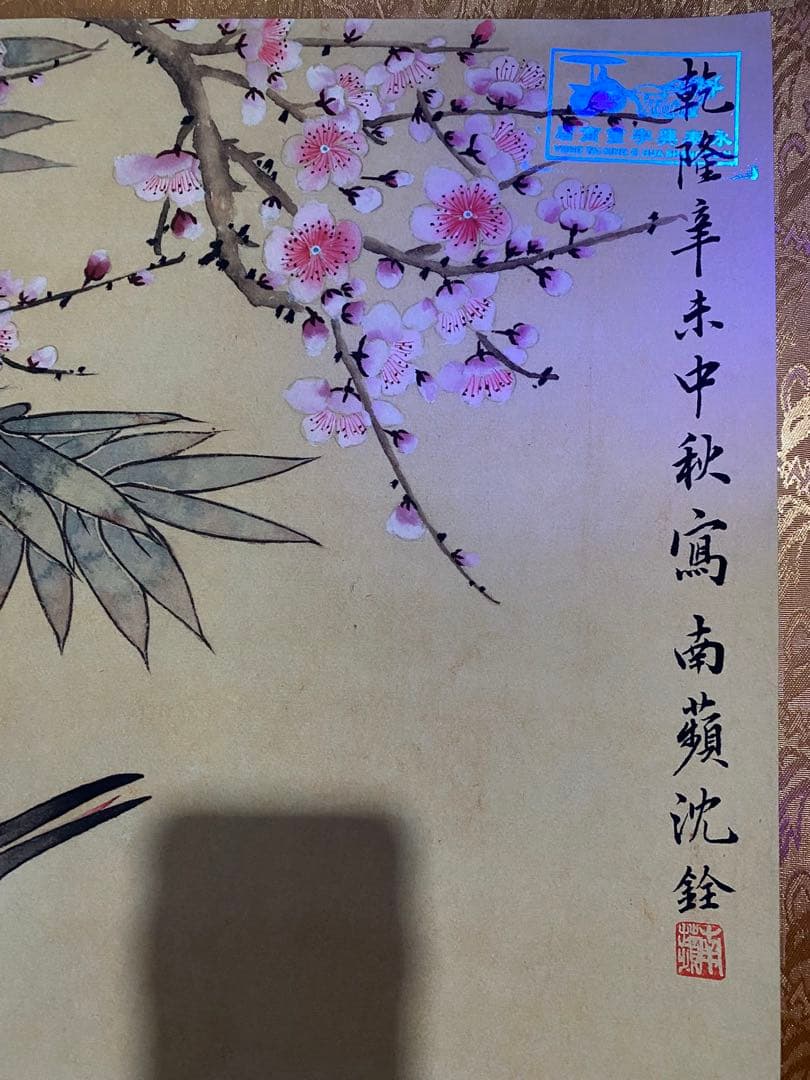 乾隆辛未中秋寫 南蘋沈銓
南蘋